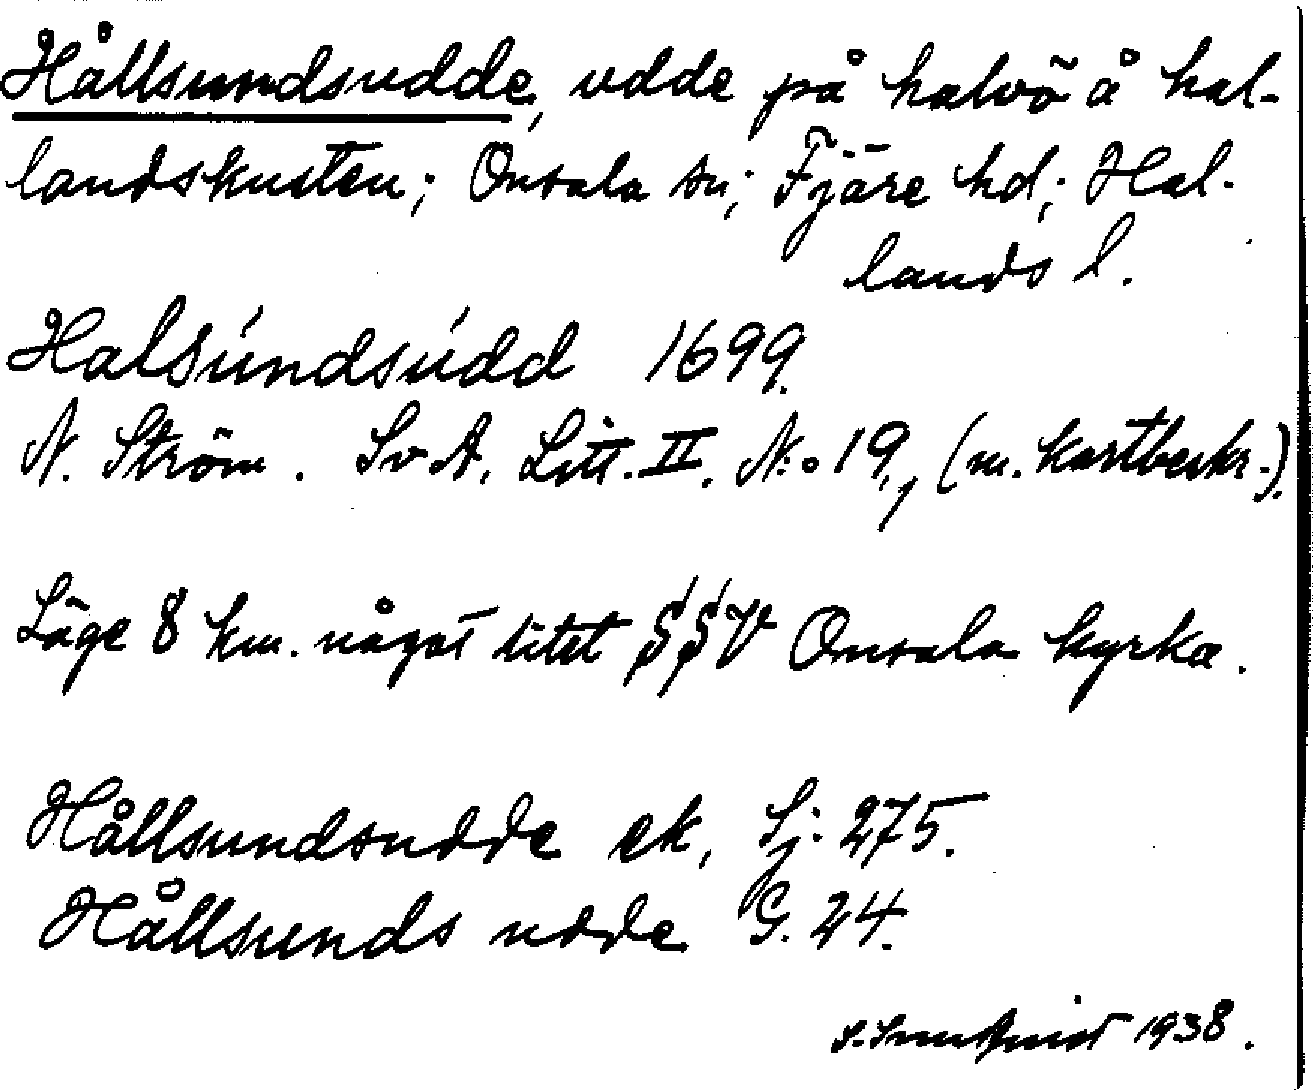 Hållsundsudde, udde på halvö å hal-
landskusten; Onsala sn; Fjäre hd; Hal-
lands l.
Halsúndsúdd 1699.
N. Ström. SvA, Litt. II. N:o 19, (m. kartbeskr.).
Läge 8 km. något litet SSV Onsala kyrka.
Hållsundsudde ek, Sj: 275.
Hållsunds udde G. 24.
1938.